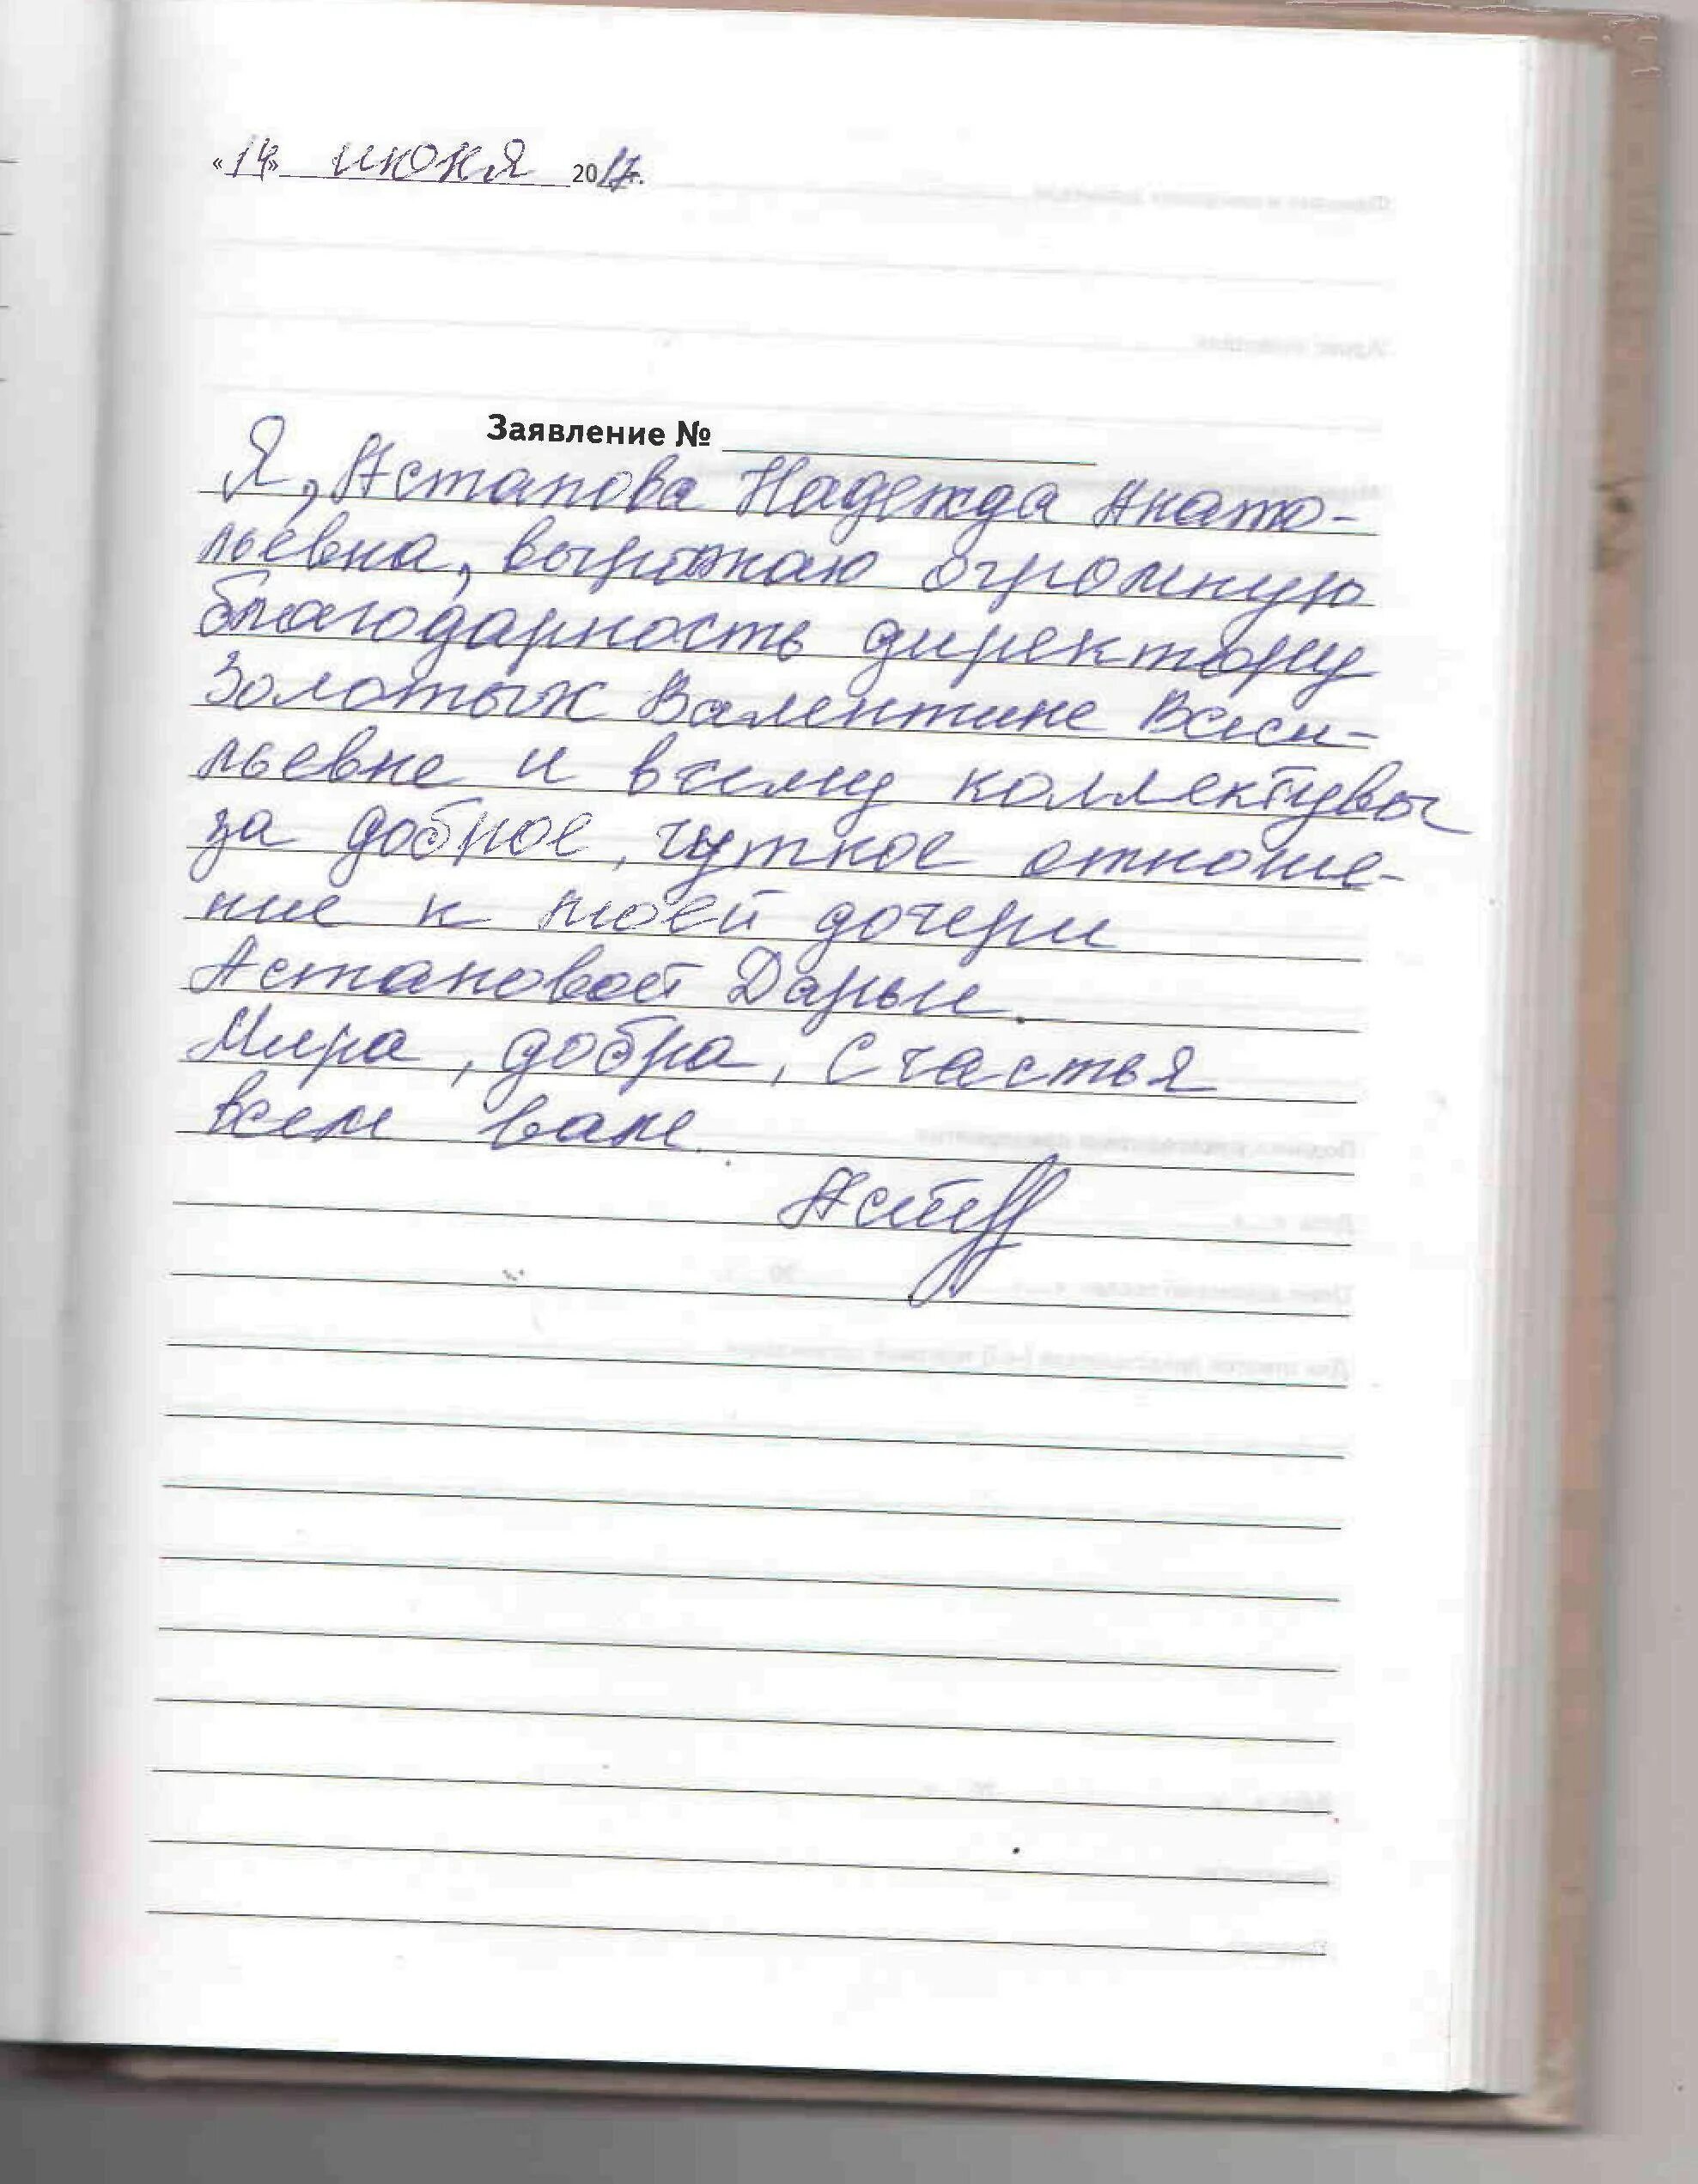 «14» июня 2017г.
Заявление № ___
Я, Астапова Надежда Анато-
льевна, выражаю огромную
благодарность директору
Золотых Валентине Васи-
льевне и всему коллективу
за доброе, чуткое отноше-
ние к моей дочери
Астаповой Дарьи.
Мира, добра, счастья
всем вам.